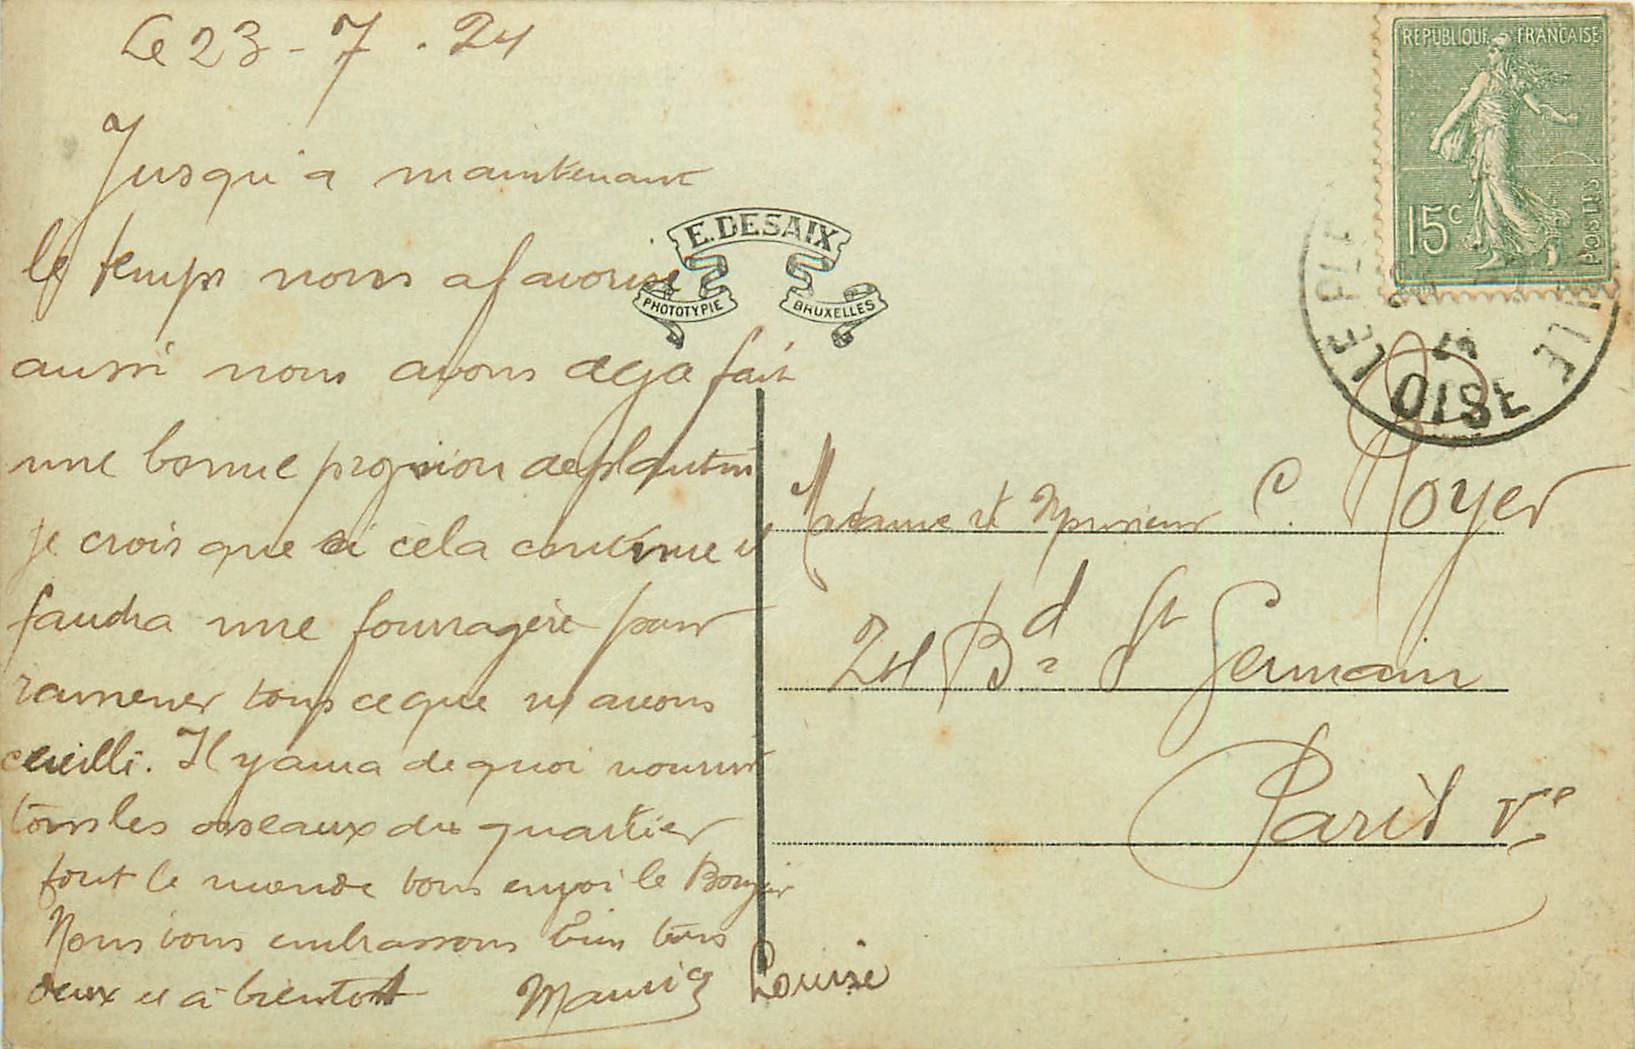 Le 23 - 7 . 24
Jusqu'a maintenant
le temps nous a favorise
aussi nous avons deja fait
une bonne provision de plantin
je crois que si cela continue il
faudra une fourragère pour
ramener tous ce que ns avons
ceuilli. Il y aura de quoi nourrir
tous les oiseaux du quartier
tout le monde vous envoi le Bonjour
Nous vous embrassons bien tous
deux et à bientot Louise
E. DESAIX
PHOTOTYPIE BRUXELLES
REPUBLIQUE FRANCAISE
15c
POSTES
OISE
Madame et Monsieur C. Noyer
24 Bd St Germain
Paris Ve